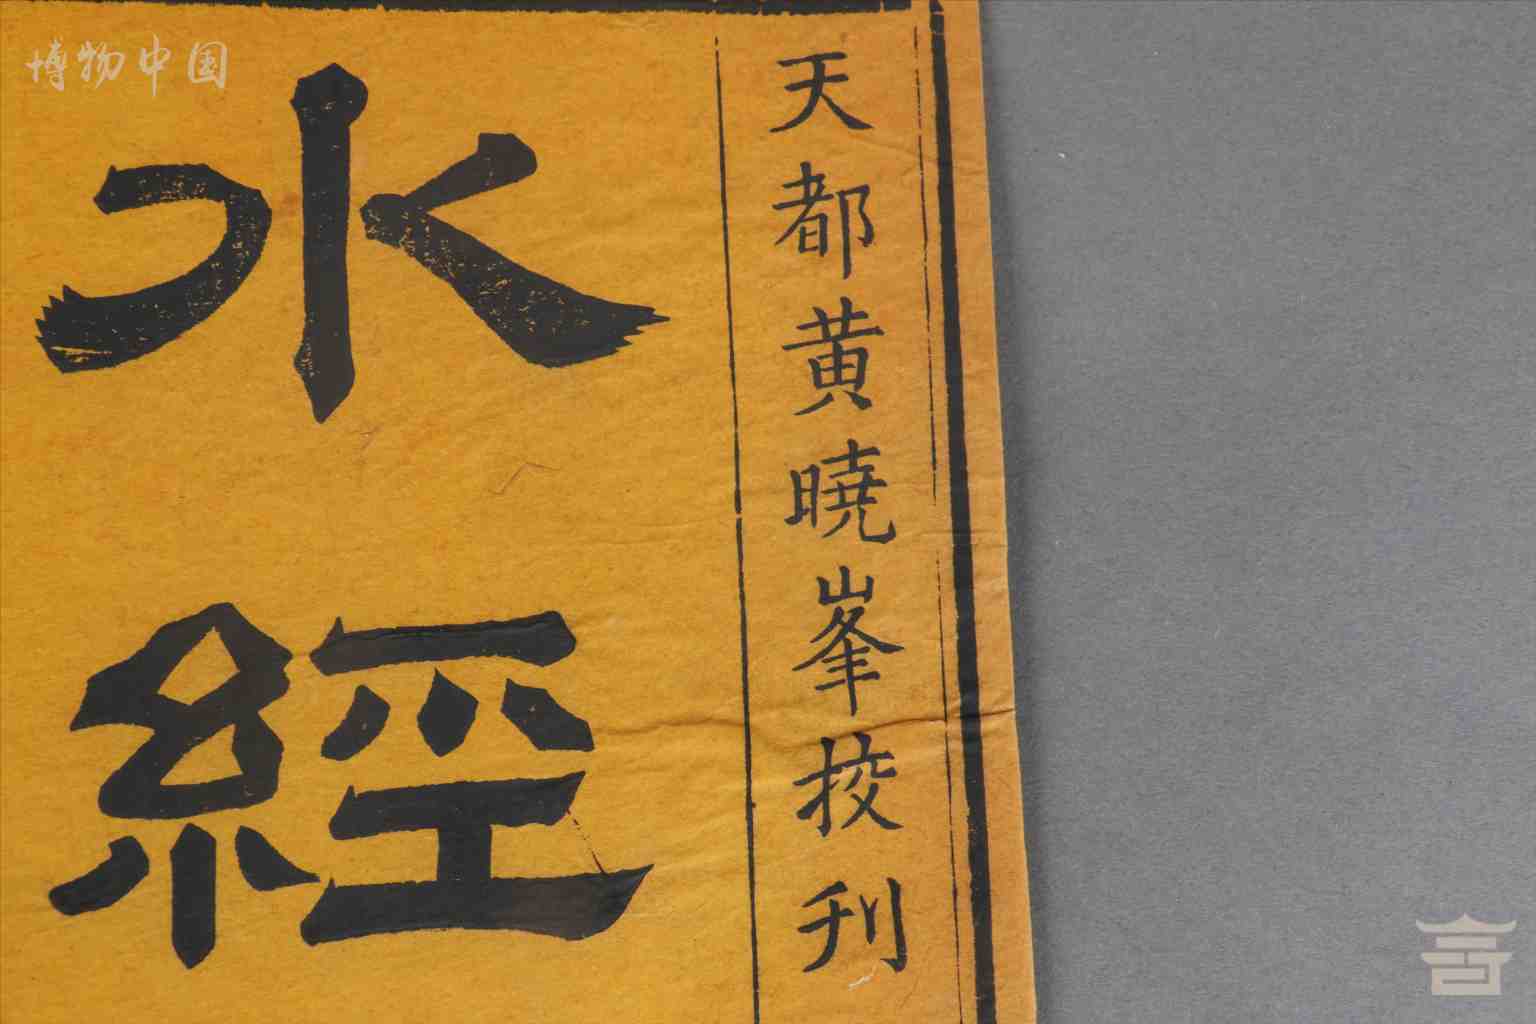 博物中国
天都黄曉峯挍刋
水經